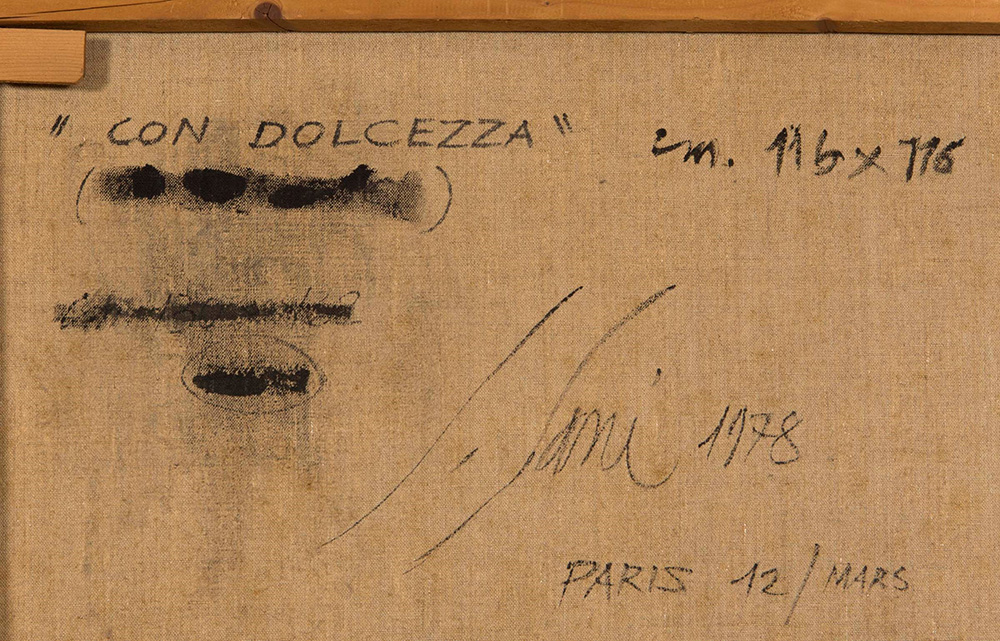 " CON DOLCEZZA " cm. 116 x 116
Sani 1978
PARIS 12/MARS